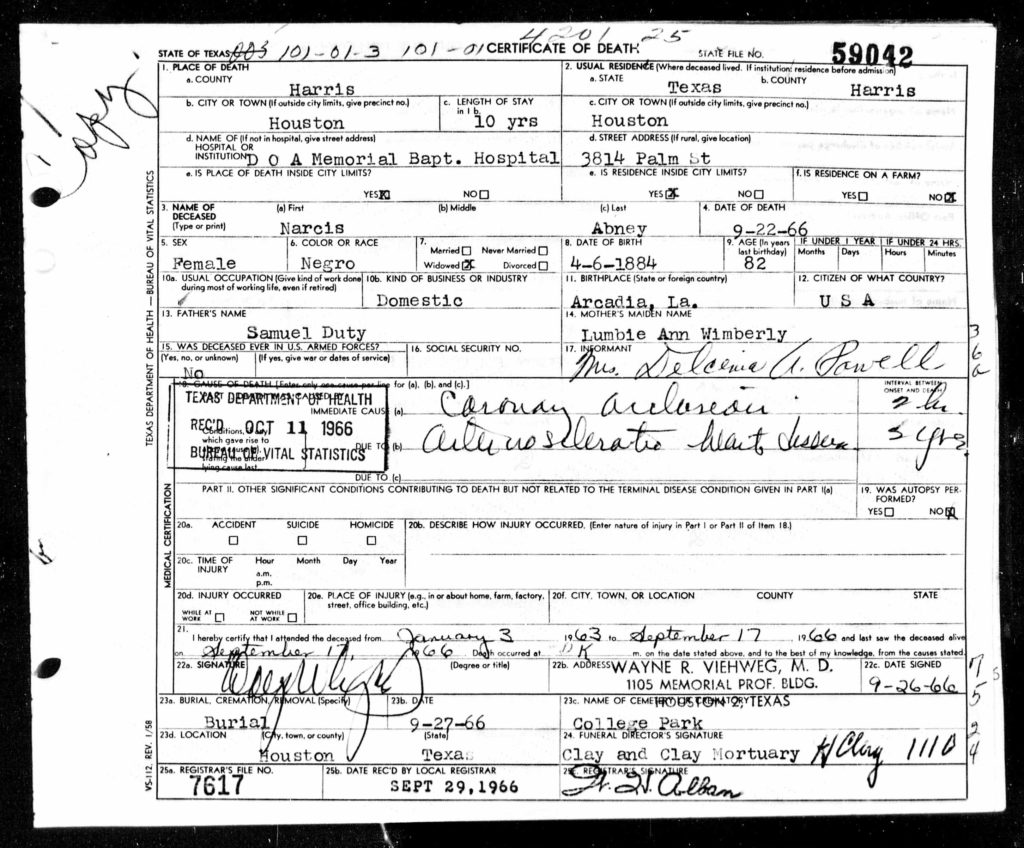 4201 25
STATE OF TEXAS 003 101-01-3 101-01 CERTIFICATE OF DEATH STATE FILE NO. 59042
Copy
1. PLACE OF DEATH
a. COUNTY
Harris
2. USUAL RESIDENCE (Where deceased lived. If institution: residence before admission)
a. STATE
Texas
b. COUNTY
Harris
b. CITY OR TOWN (If outside city limits, give precinct no.)
Houston
c. LENGTH OF STAY in 1 b.
10 yrs
c. CITY OR TOWN (If outside city limits, give precinct no.)
Houston
d. NAME OF (If not in hospital, give street address)
HOSPITAL OR
INSTITUTION D O A Memorial Bapt. Hospital
d. STREET ADDRESS (If rural, give location)
3814 Palm St
e. IS PLACE OF DEATH INSIDE CITY LIMITS?
YES X NO
e. IS RESIDENCE INSIDE CITY LIMITS?
YES X NO
f. IS RESIDENCE ON A FARM?
YES NO X
3. NAME OF DECEASED
(Type or print)
(a) First
Narcis
(b) Middle
(c) Last
Abney
4. DATE OF DEATH
9-22-66
5. SEX
Female
6. COLOR OR RACE
Negro
7.
Married Never Married
Widowed X Divorced
8. DATE OF BIRTH
4-6-1884
9. AGE (In years last birthday)
82
IF UNDER 1 YEAR
Months Days
IF UNDER 24 HRS.
Hours Minutes
10a. USUAL OCCUPATION (Give kind of work done during most of working life, even if retired)
10b. KIND OF BUSINESS OR INDUSTRY
Domestic
11. BIRTHPLACE (State or foreign country)
Arcadia, La.
12. CITIZEN OF WHAT COUNTRY?
U S A
13. FATHER'S NAME
Samuel Duty
14. MOTHER'S MAIDEN NAME
Lumbie Ann Wimberly
15. WAS DECEASED EVER IN U.S. ARMED FORCES?
(Yes, no, or unknown) (If yes, give war or dates of service)
No
16. SOCIAL SECURITY NO.
17. INFORMANT
Mrs. Delcenia A. Powell
18. CAUSE OF DEATH [Enter only one cause per line for (a), (b), and (c).]
IMMEDIATE CAUSE (a) Coronary occlusion
INTERVAL BETWEEN ONSET AND DEATH
2 hr.
TEXAS DEPARTMENT OF HEALTH
REC'D OCT 11 1966
BUREAU OF VITAL STATISTICS
Conditions,
which gave rise to
lying cause last.
DUE TO (b) Arteriosclerotic Heart Disease 5 yrs
DUE TO (c)
PART II. OTHER SIGNIFICANT CONDITIONS CONTRIBUTING TO DEATH BUT NOT RELATED TO THE TERMINAL DISEASE CONDITION GIVEN IN PART I(a)
19. WAS AUTOPSY PERFORMED?
YES NO X
MEDICAL CERTIFICATION
20a. ACCIDENT SUICIDE HOMICIDE
20b. DESCRIBE HOW INJURY OCCURRED. (Enter nature of injury in Part I or Part II of Item 18.)
20c. TIME OF INJURY
Hour Month Day Year
a.m.
p.m.
20d. INJURY OCCURRED
WHILE AT WORK NOT WHILE AT WORK
20e. PLACE OF INJURY (e.g., in or about home, farm, factory, street, office building, etc.)
20f. CITY, TOWN, OR LOCATION COUNTY STATE
21. I hereby certify that I attended the deceased from January 3 1963 to September 17 1966 and last saw the deceased alive
on September 17, 1966 Death occurred at DK m. on the date stated above, and to the best of my knowledge, from the causes stated.
22a. SIGNATURE (Degree or title)
22b. ADDRESS WAYNE R. VIEHWEG, M. D.
1105 MEMORIAL PROF. BLDG.
HOUSTON 2, TEXAS
22c. DATE SIGNED
9-26-66
23a. BURIAL, CREMATION, REMOVAL (Specify)
Burial
23b. DATE
9-27-66
23c. NAME OF CEMETERY OR CREMATORY
College Park
23d. LOCATION (City, town, or county) (State)
Houston Texas
24. FUNERAL DIRECTOR'S SIGNATURE
Clay and Clay Mortuary H Clay 1110
25a. REGISTRAR'S FILE NO.
7617
25b. DATE REC'D BY LOCAL REGISTRAR
SEPT 29, 1966
25c. REGISTRAR'S SIGNATURE
TEXAS DEPARTMENT OF HEALTH — BUREAU OF VITAL STATISTICS
VS-112, REV. 1/58